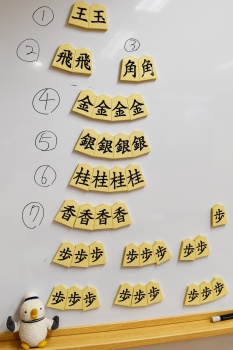 ① 王玉
② 飛飛 ③ 角角
④ 金金金金
⑤ 銀銀銀銀
⑥ 桂桂桂桂
⑦ 香香香香 歩
歩歩歩 歩歩歩 歩歩
歩歩歩 歩歩歩 歩歩歩